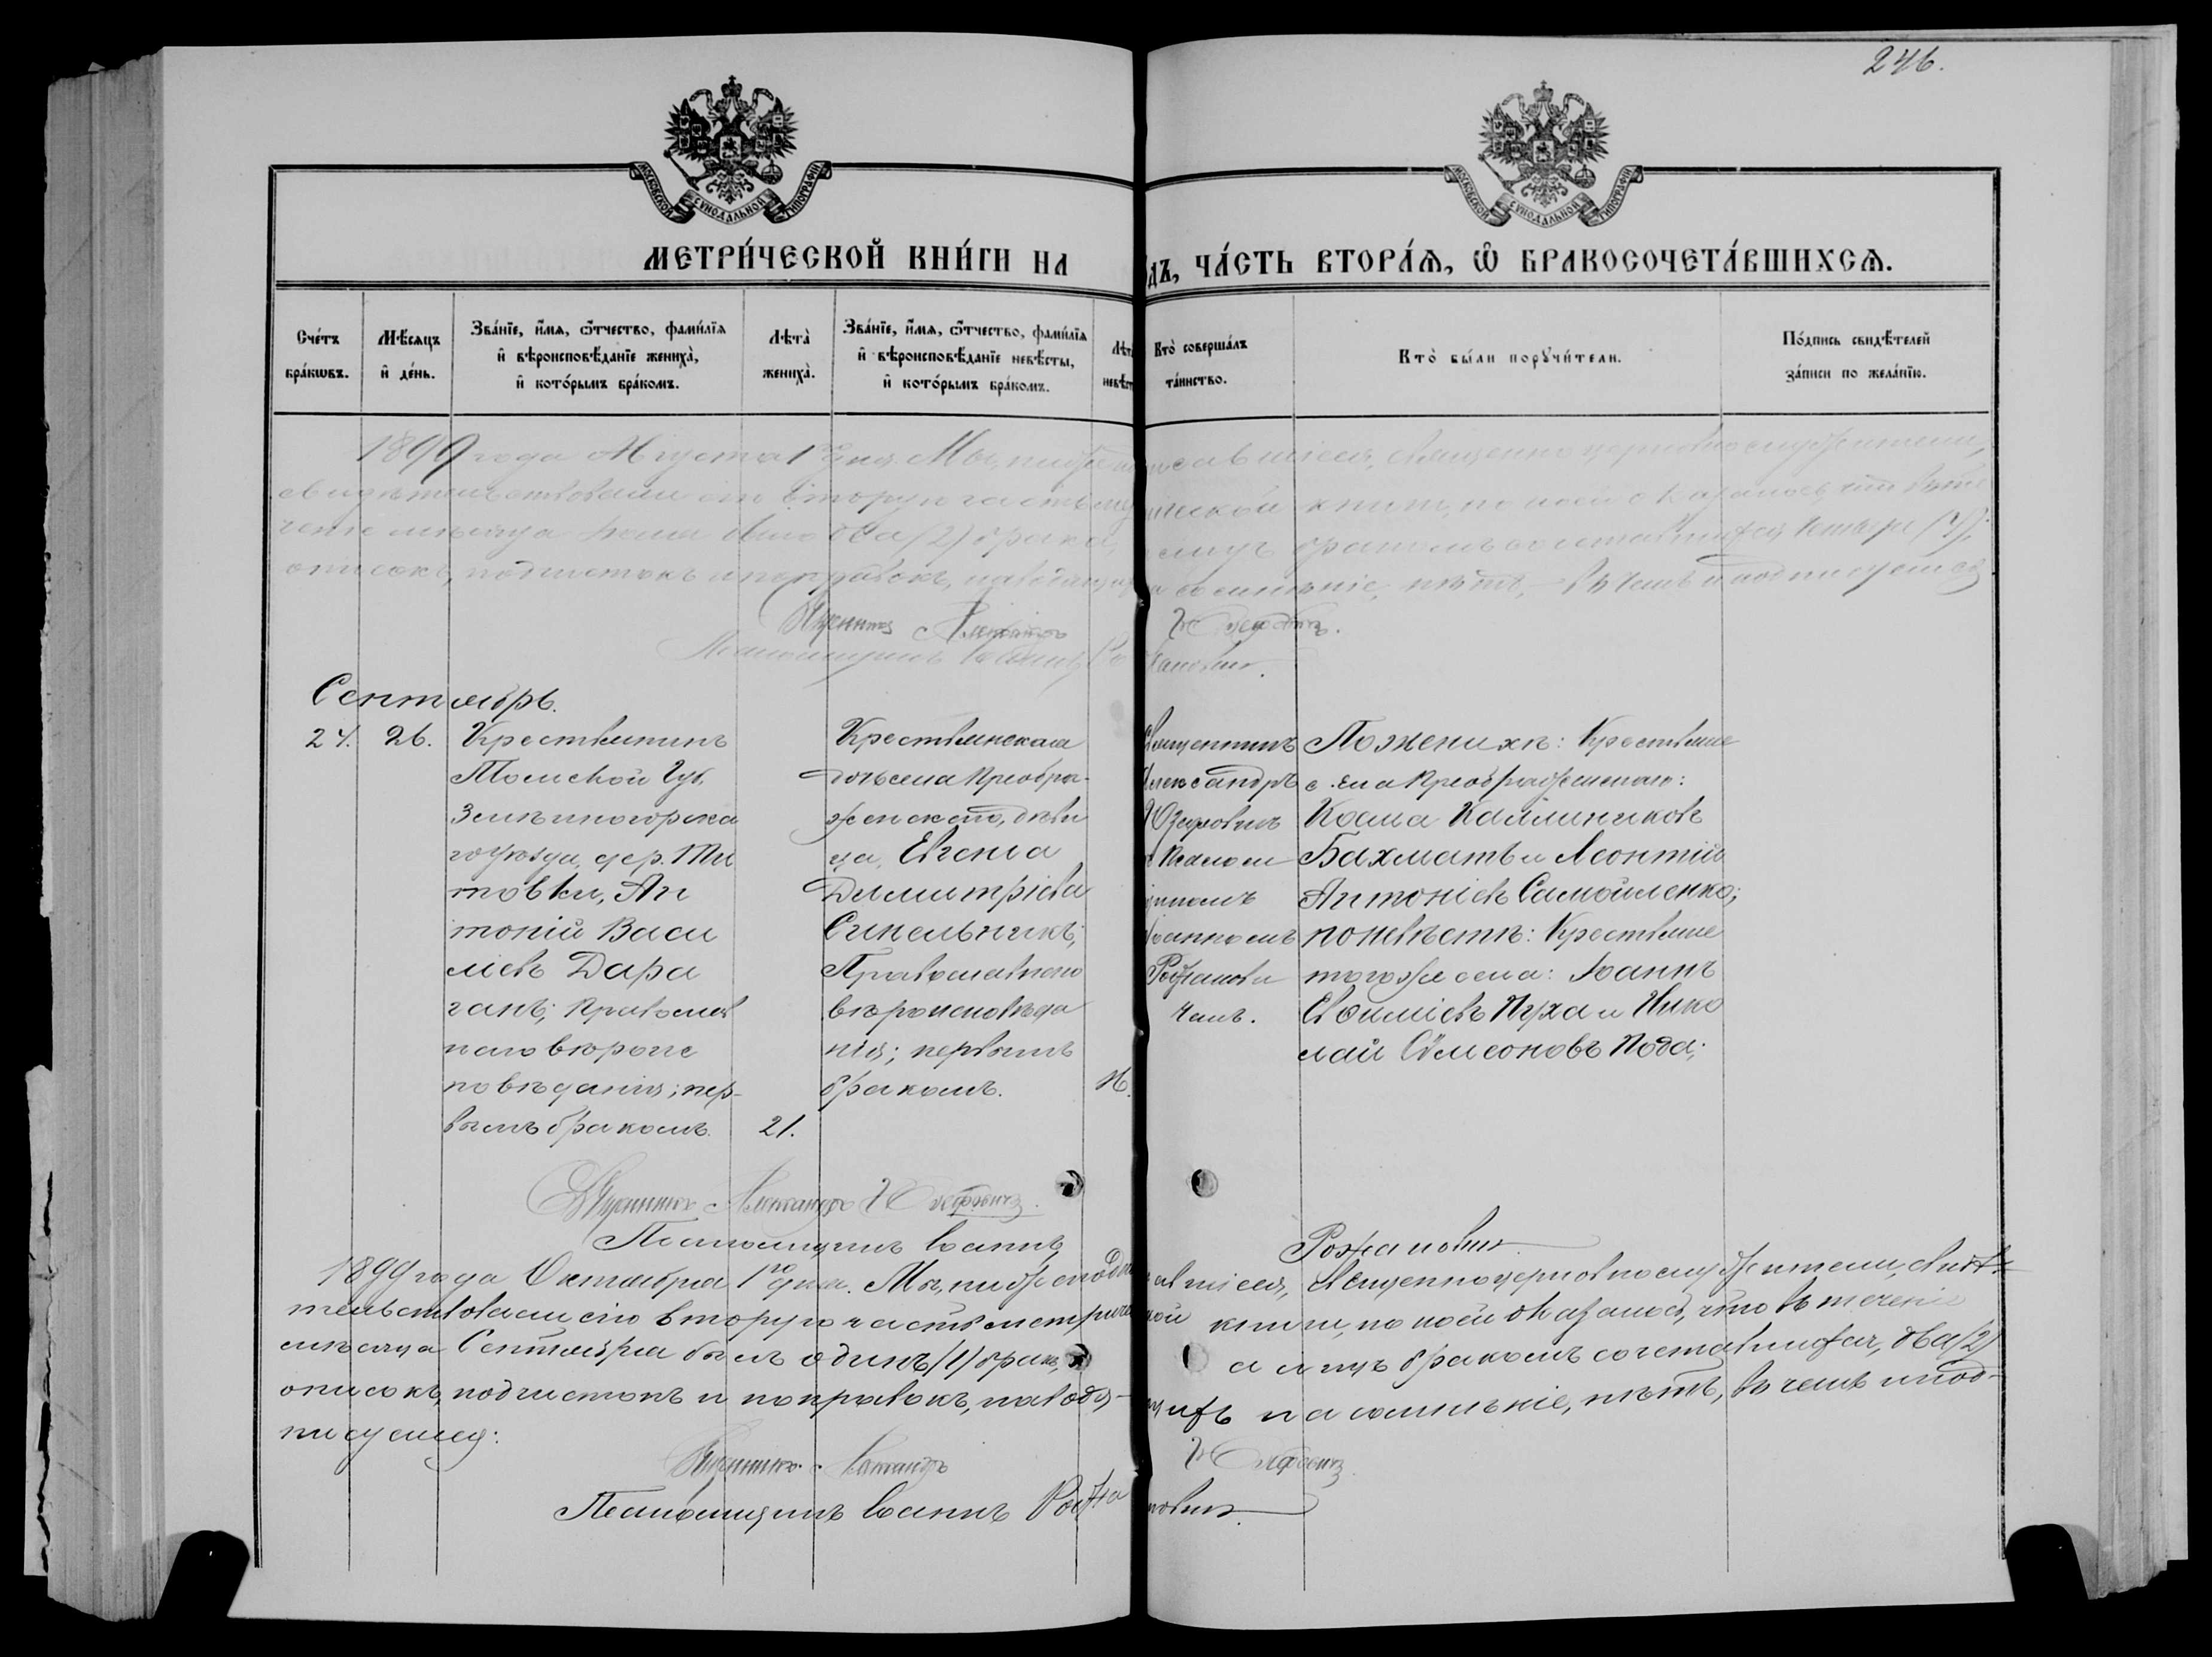 246.
МОСКОВСКОЙ СѴНОДАЛЬНОЙ ТИПОГРАФІИ
МОСКОВСКОЙ СѴНОДАЛЬНОЙ ТИПОГРАФІИ
МЕТРИ́ЧЕСКОЙ КНИ́ГИ НА
ДЪ, ЧА́СТЬ ВТОРА́Ѧ, Ѡ҆ БРАКОСОЧЕТА́ВШИХСѦ.
Сче́тъ бра́кωвъ.
Мѣ́сяцъ и҆ де́нь.
Зва́нїе, и҆́мѧ, ѻ҆́тчество, фами́лїѧ и҆ вѣроисповѣ́данїе жениха̀, и҆ кото́рымъ бра́комъ.
Лѣта̀ жениха̀.
Зва́нїе, и҆́мѧ, ѻ҆́тчество, фами́лїѧ и҆ вѣроисповѣ́данїе невѣ́сты, и҆ кото́рымъ бра́комъ.
Лѣта̀ невѣст
Кто̀ соверша́лъ та́инство.
Кто̀ бы́ли порꙋчи́тели.
По́дпись свидѣ́телей за́писи по жела́нїю.
1899 года Августа 1го дня. Мы, нижепо писавшіеся, священноцерковнослужители,
свидѣтельствовали сію вторую часть ме рической книги, по коей оказалось, что въ те
ченіе мѣсяца Іюля было два (2) брака, лицъ бракомъ сочетавшихся четыре (4);
описокъ, подчистокъ и поправокъ, наводящихъ на сомнѣніе, нѣтъ, въ чемъ и подписуемся
Священникъ Александръ Юзефовичъ.
Псаломщикъ Іоаннъ Рожановичъ.
Сентябрь.
24. 26.
Крестьянинъ
Томской Губ,
Змѣиногорска
го уѣзда, дер. Ти
товки, Ан
тоній Васи
ліевъ Дара
ганъ; Православ
наго вѣроис
повѣданія; пер-
вымъ бракомъ.
21.
Крестьянская
дочь села Преобра-
женскаго, дѣви
ца, Евгенія
Димитріева
Синельникъ;
Православнаго
вѣроисповѣда
нія; первымъ
бракомъ.
Священникъ
Александръ
Юзефовичъ
съ Псалом
щикомъ
Іоанномъ
Рожанови
чемъ.
По женихѣ: Крестьяне
села Преображенскаго:
Косма Каллиниковъ
Бахмать и Леонтій
Антоніевъ Самойленко;
по невѣстѣ: Крестьяне
тогоже села: Іоаннъ
Евѳиміевъ Пуха и Нико
лай Сѵмеоновъ Пода;
Священникъ Александръ Юзефовичъ.
Псаломщикъ Іоаннъ Рожановичъ.
1899 года Октября 1го дня. Мы, нижеподпи савшіеся, священноцерковнослужители, свидѣ-
тельствовали сію вторую часть метриче кой книги, по коей оказалось, что въ теченіе
мѣсяца Сентября былъ одинъ (1) бракъ, а лицъ бракомъ сочетавшихся, два (2)
описокъ, подчистокъ и поправокъ, наводя- щихъ на сомнѣніе, нѣтъ, въ чемъ и под-
писуемся:
Священникъ Александръ Юзефовичъ.
Псаломщикъ Іоаннъ Рожановичъ.